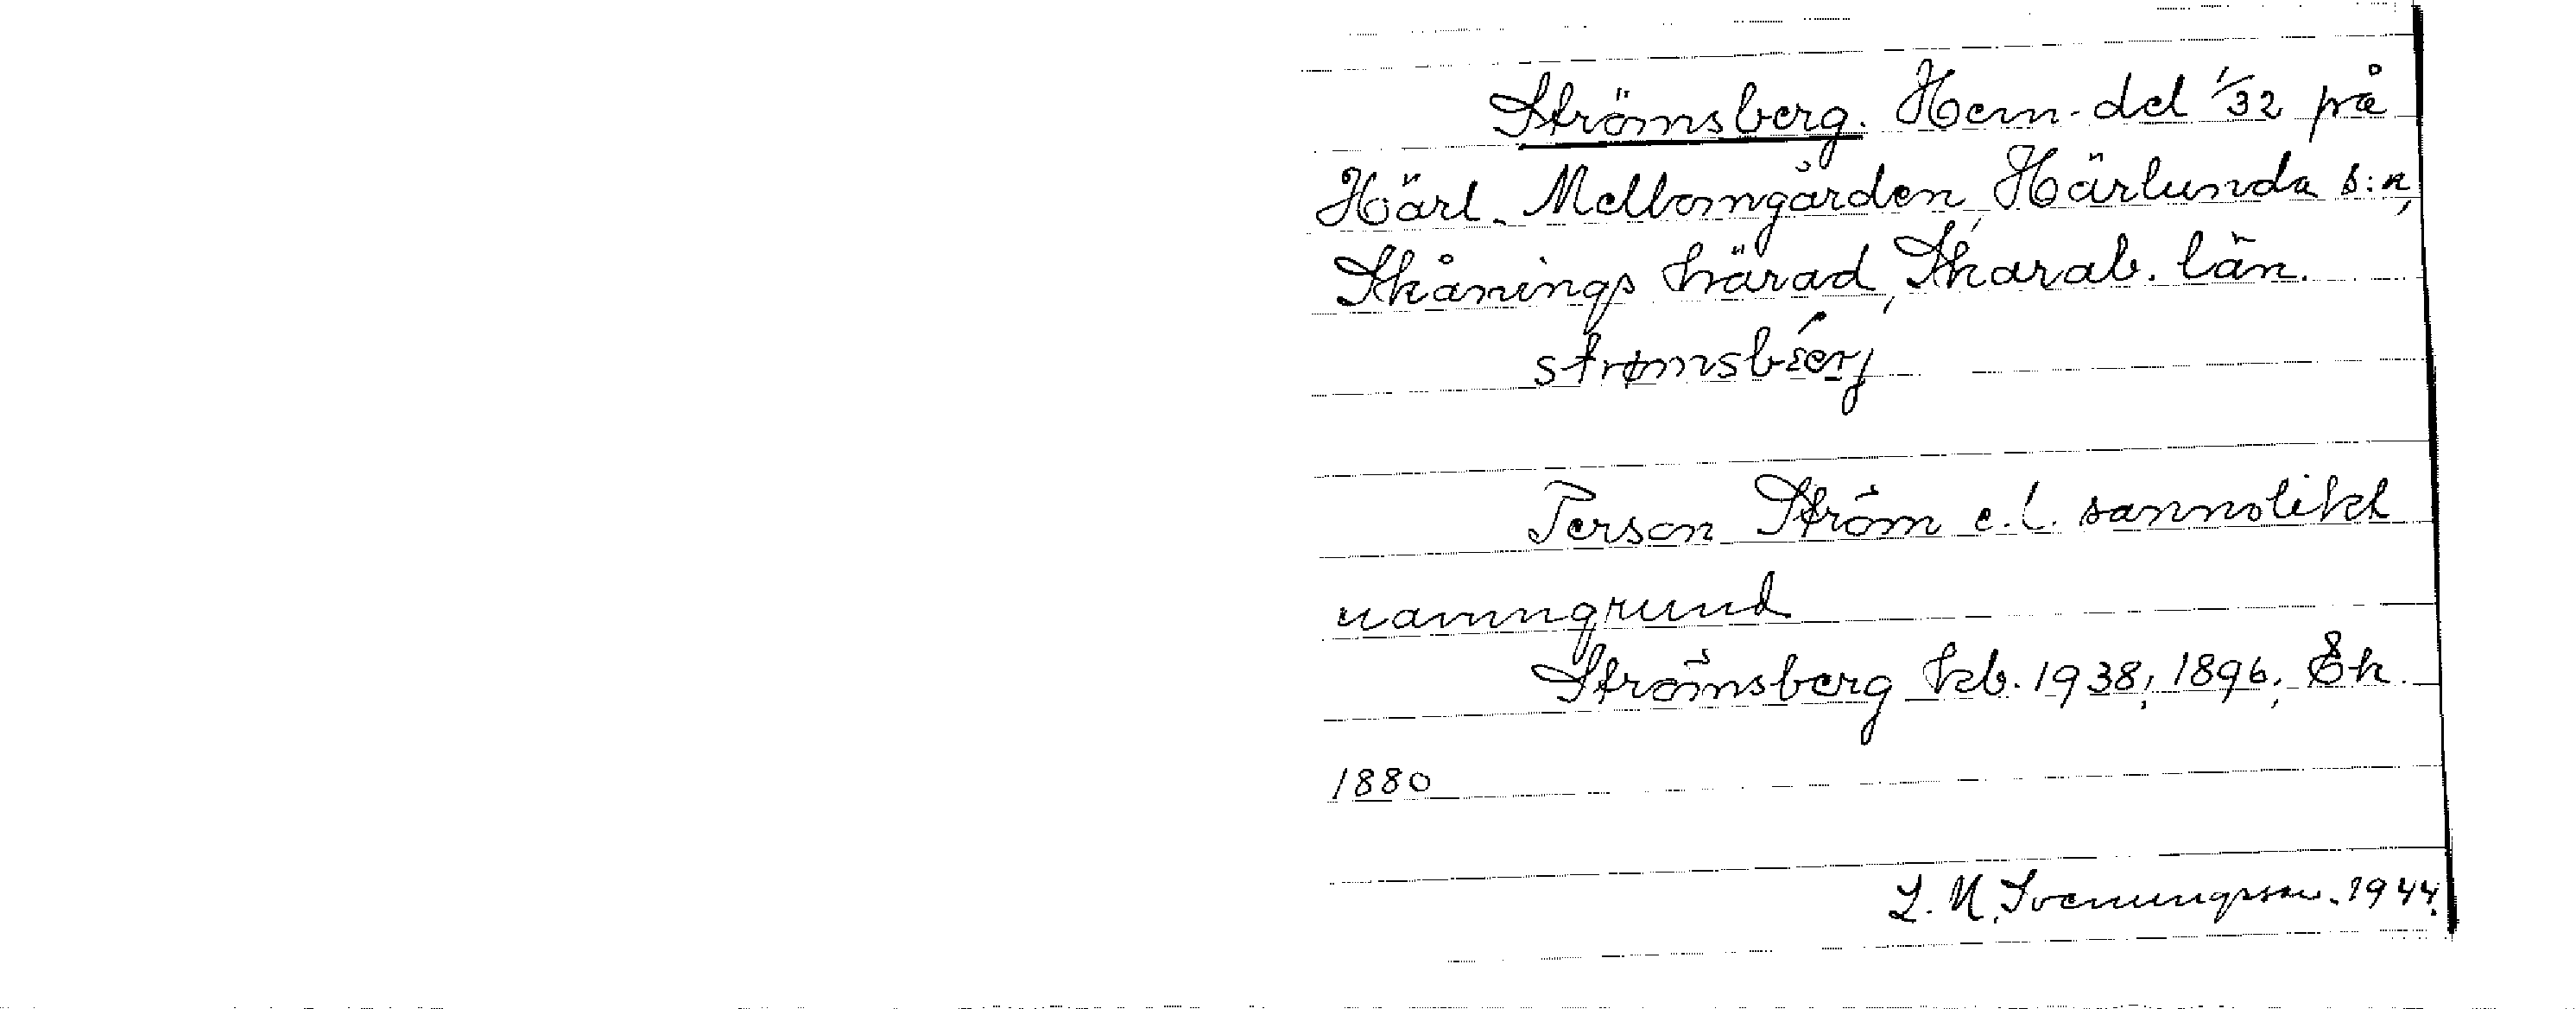 Strömsberg. Hem. del 1/32 på
Härl. Mellomgården, Härlunda s:n,
Skånings härad, Skarab. län.
strømsbærj
Person Ström e.l. sannolikt
namngrund
Strömsberg kb. 1938, 1896, Ek.
1880
L. N. Svenungsson. 1944.